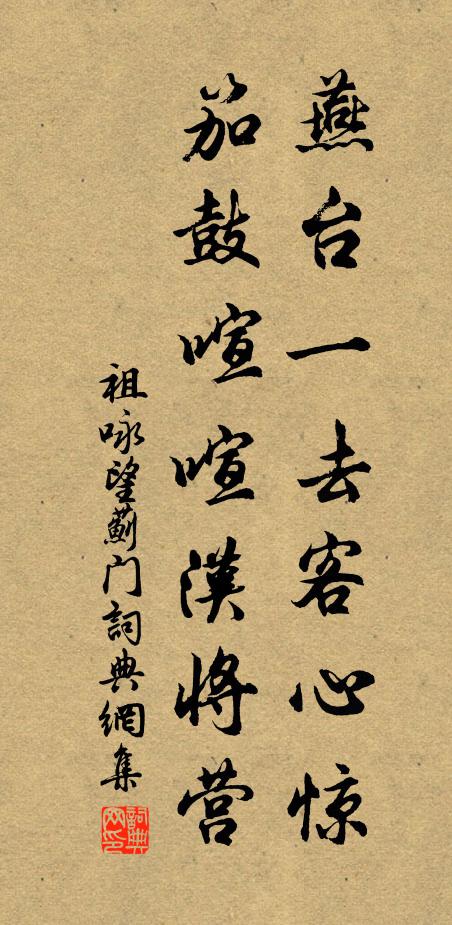 燕台一去客心惊
笳鼓喧喧漢将营
祖咏望薊门詞典網集
詞典网印